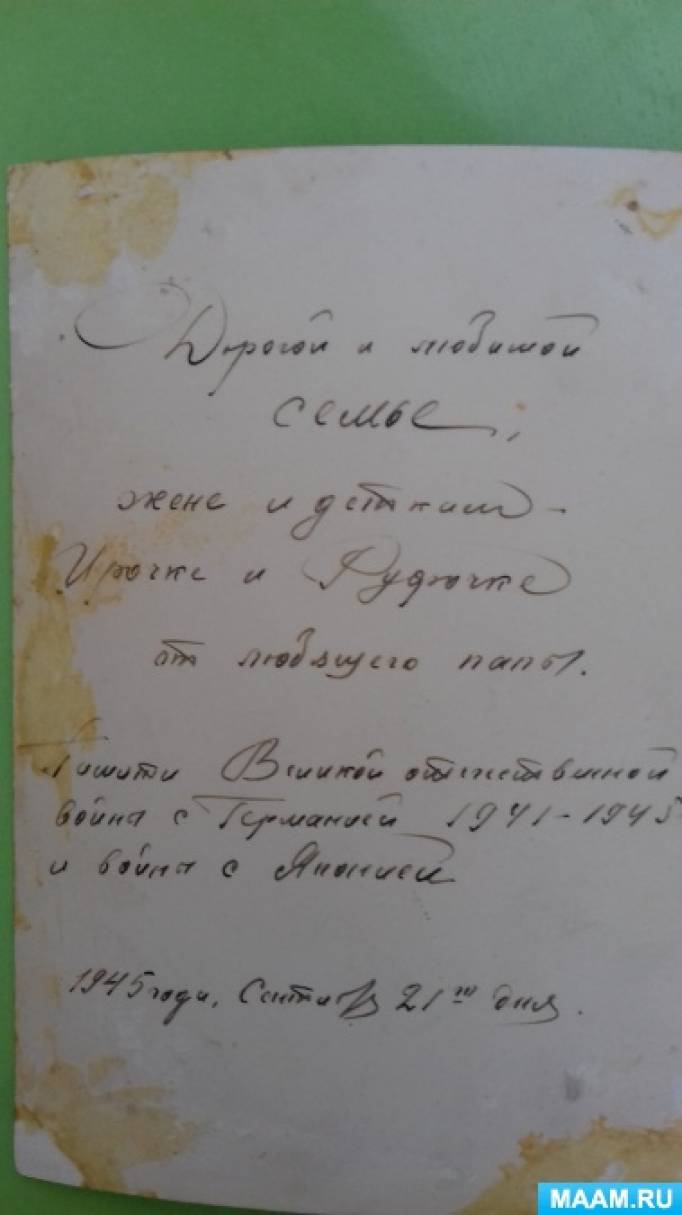 Дорогой и любимой
семье,
жене и деткам -
Ирочке и Рудочке
от любящего папы.
Памяти Великой отечественной
войны с Германией 1941-1945
и войны с Японией
1945 года, Сентября 21го дня.
MAAM.RU